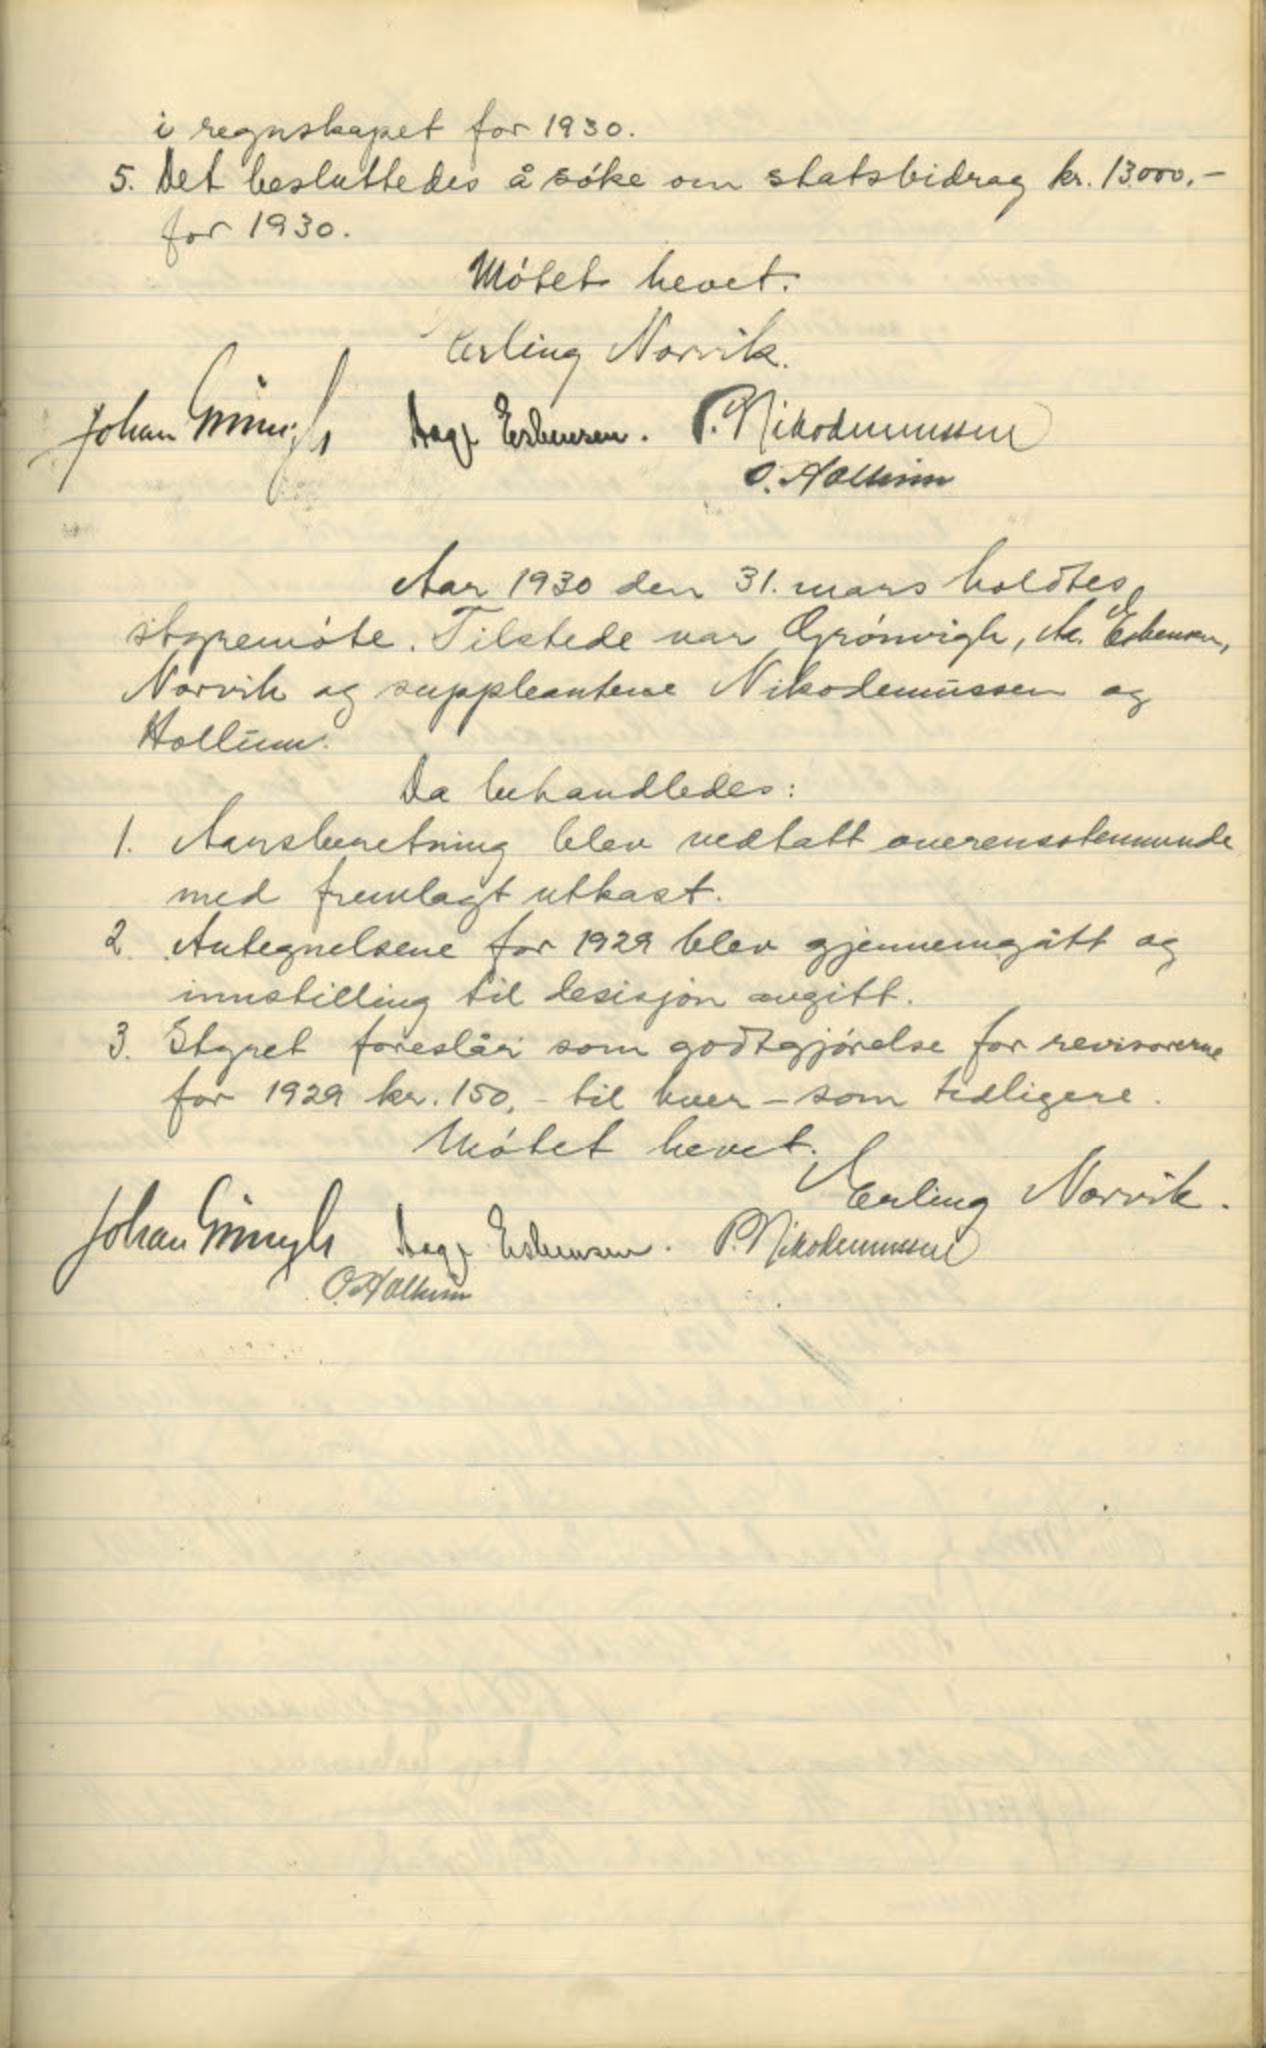 i regnskapet for 1930.
5. Det besluttedes å søke om statsbidrag kr. 13000,-
for 1930.
Møtet hevet.
Erling Norvik.
Johan Grønvigh Aage Esbensen. P. Nikodemussen
O. Hollum
Aar 1930 den 31. mars holdtes
styremøte. Tilstede var Grønvigh, Aa. Esbensen,
Norvik og suppleantene Nikodemussen og
Hollum.
Da behandledes:
1. Aarsberetning blev vedtatt overensstemmende
med fremlagt utkast.
2. Antegnelsene for 1929 blev gjennemgått og
innstilling til desisjon avgitt.
3. Styret foreslår som godtgjørelse for revisorerne
for 1929 kr. 150,- til hver – som tidligere.
Møtet hevet.
Erling Norvik.
Johan Grønvigh Aage Esbensen. P. Nikodemussen
O. Hollum